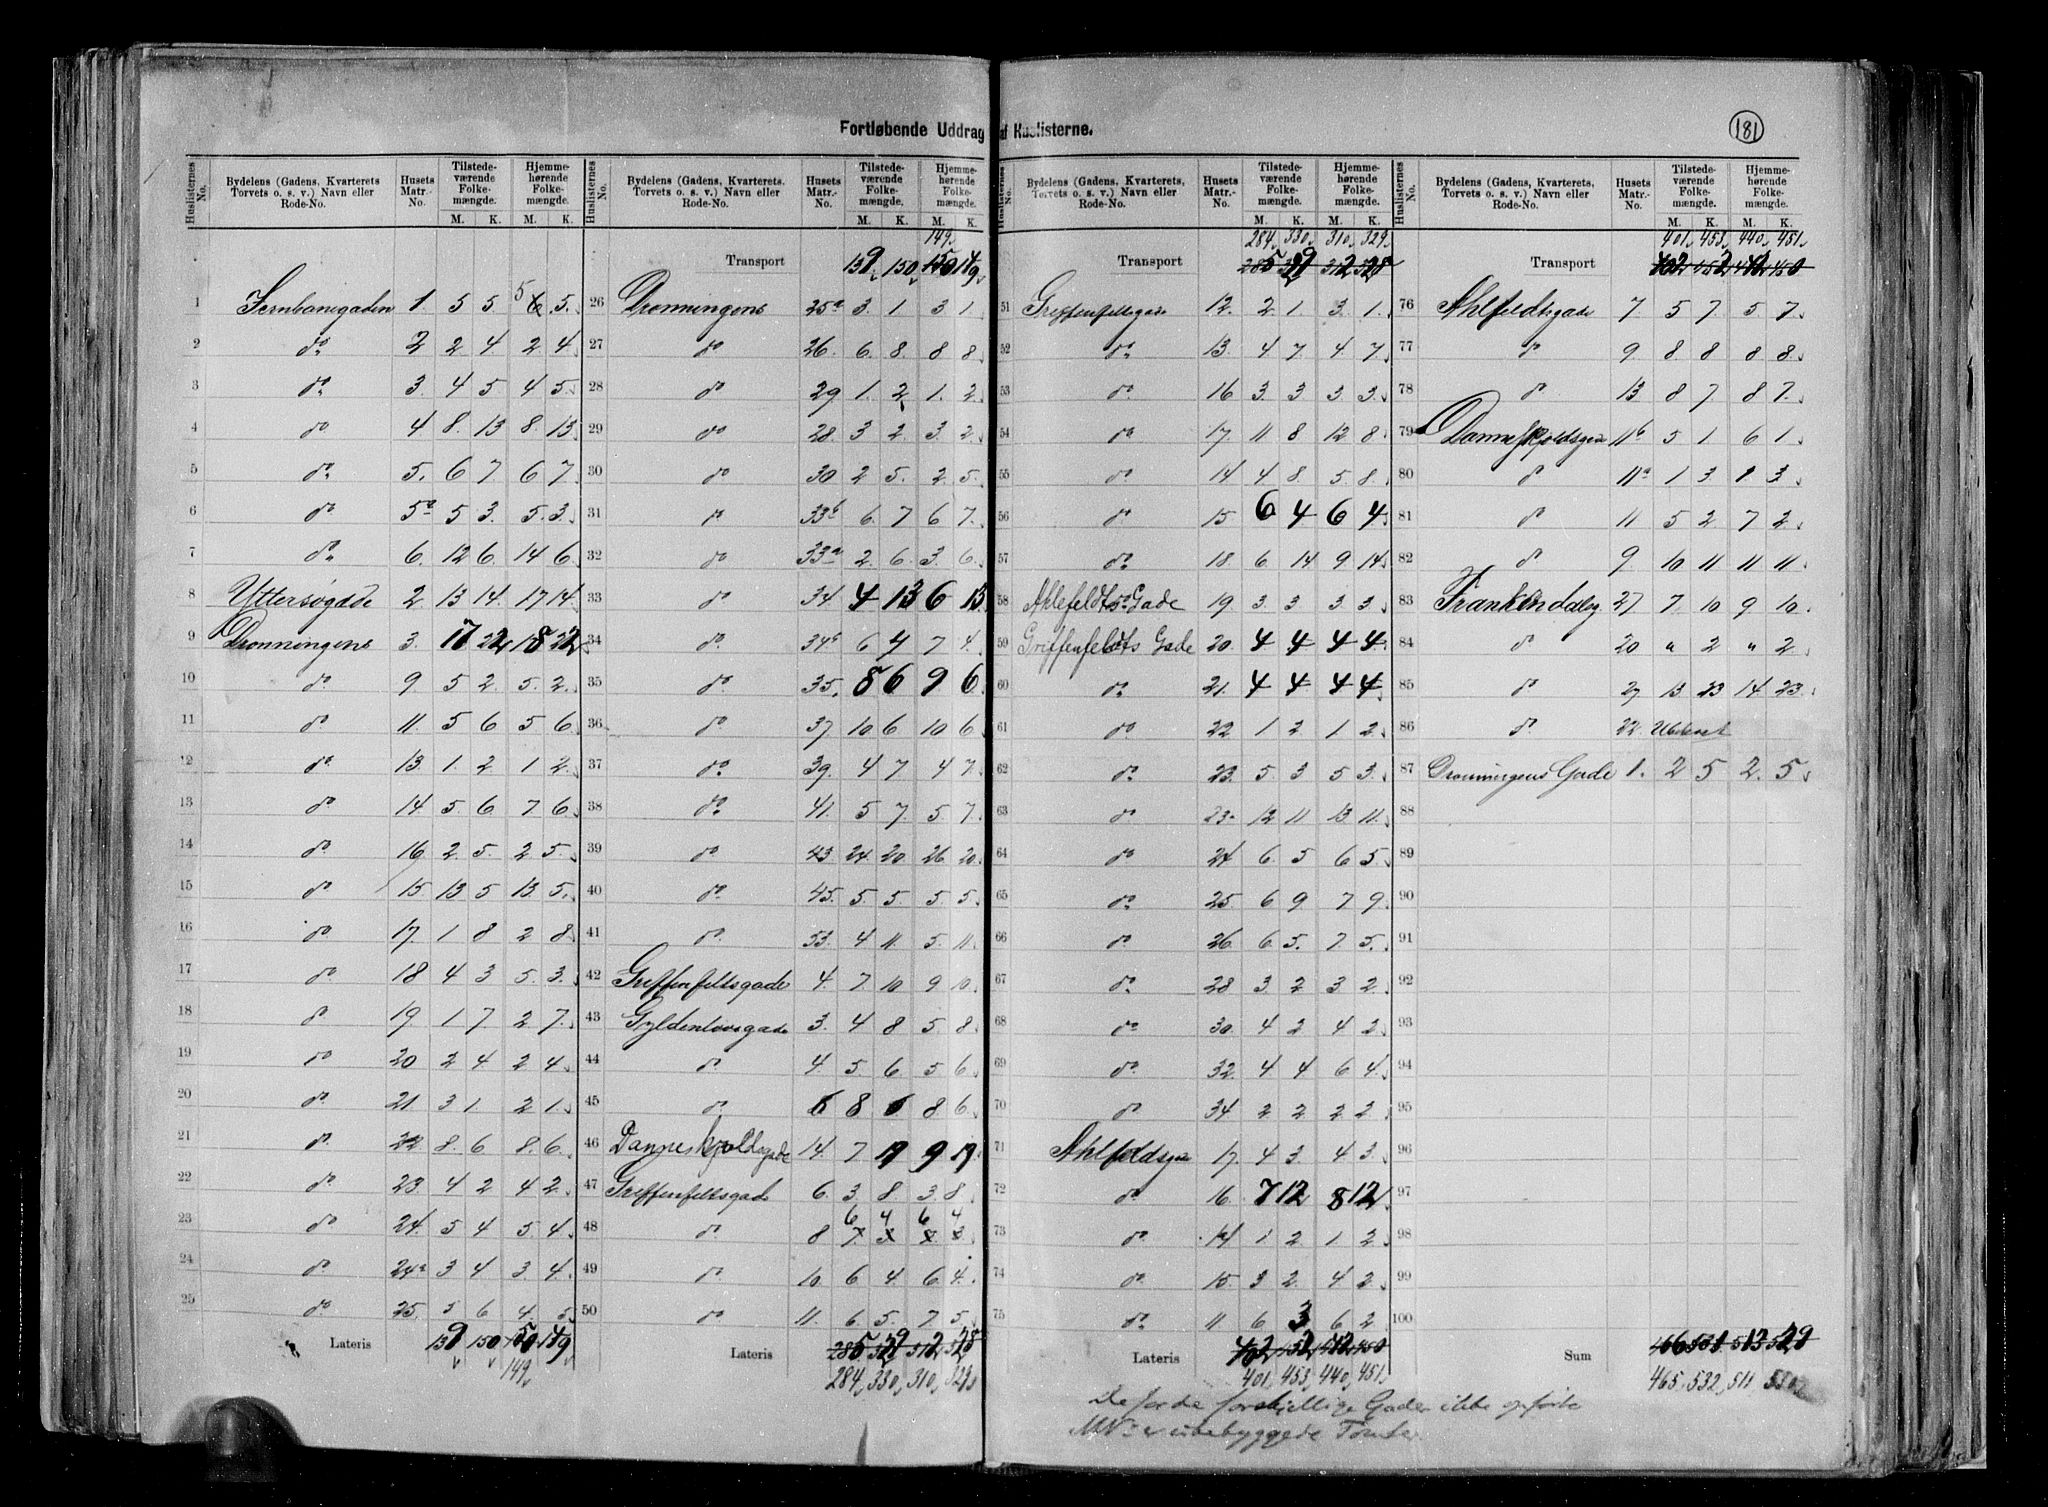 Fortløbende Uddrag af Huslisterne.
181
Huslisternes No. | Bydelens (Gadens, Kvarterets, Torvets o. s. v.) Navn eller Rode-No. | Husets Matr.-No. | Tilstedeværende Folkemængde. M. K. | Hjemmehørende Folkemængde. M. K.
1 Jernbanegaden 1. 5 5 5 5.
2 do 2 2 4. 2. 4.
3 do 3. 4 5 4 5.
4 do 4. 8. 13 8. 13.
5 do 5. 6 7. 6 7.
6 do 5a 5 3. 5. 3.
7 do 6. 12 6. 14 6.
8 Yttersøgade 2. 13 14. 17 14.
9 Dronningens 3. 17 22 18 22
10 do 9 5 2. 5. 2.
11 do 11. 5 6 5 6.
12 do 13. 1. 2. 1 2.
13 do 14. 5 6. 7. 6.
14 do 16 2. 5. 2 5.
15 do 15. 13 5 13. 5.
16 do 17. 1 8 2 8.
17 do 18 4 3 5. 3.
18 do 19 1 7 2 7.
19 do 20 2 4 2 4.
20 do 21. 3 1. 2 1.
21 do 22 8. 6 8. 6.
22 do 23 4 2 4 2.
23 do 24. 5 4 5. 4.
24 do 24a 3 4 3 4.
25 do 25. 5 6 4. 5.
Lateris 139 150 150 149
149
Transport 139 150 150 149
149
26 Dronningens 25a 3. 1 3 1
27 do 26. 6. 8. 8 8.
28 do 29 1. 2 1. 2.
29 do 28. 3 2. 3. 2.
30 do 30 2 5. 2. 5.
31 do 33b 6. 7 6 7.
32 do 33a 2 6. 3. 6.
33 do 34. 4 13 6 13
34 do 34b 6 4 7 4.
35 do 35. 8 6 9 6
36 do 37 10 6 10 6
37 do 39. 4 7 4 7.
38 do 41. 5 7. 5. 7.
39 do 43 24. 20 26 20.
40 do 45. 5 5 5 5.
41 do 53. 4 11. 5. 11.
42 Griffenfeltsgade 4. 7. 10 9 10.
43 Gyldenløvsgade 3. 4 8 5 8.
44 do 4. 5. 6. 5 6.
45 do 6 8 6 8 6.
46 Danneskjoldsgade 14. 7 17 9 17
47 Griffenfeltsgade 6. 3. 8. 3. 8.
48 do 8 6 4 6 4
49 do 10. 6 4. 6 4.
50 do 11. 6. 5. 7. 5.
Lateris 285 329 312 328
284 330 310 329
Transport 285 329 312 328
284 330 310 329
51 Griffenfeltsgade 12. 2. 1 3. 1.
52 do 13. 4 7. 4. 7.
53 do 16 3. 3 3. 3.
54 do 17 11 8 12 8.
55 do 14 4 8 5. 8.
56 do 15 6 4 6 4.
57 do 18. 6 14 9 14.
58 Ahlefeldts Gade 19. 3. 3 3. 3.
59 Griffenfeldts Gade 20. 4 4 4 4.
60 do 21. 4 4 4 4.
61 do 22 1 2 1 2.
62 do 23. 5. 3 5 3.
63 do 23a 12 11 13 11.
64 do 24 6. 5 6 5.
65 do 25 6 9 7 9.
66 do 26 6. 5. 7. 5.
67 do 28 3. 2 3. 2.
68 do 30. 4 2 4 2.
69 do 32. 4 4. 6 4.
70 do 34 2 2 2 2.
71 Ahlfeldsgade 17. 4 3. 4 3.
72 do 16. 7 12 8 12.
73 do 14 1 2 1 2.
74 do 15. 3 2. 4 2.
75 do 11 6 3 6 2
Lateris 402 452 442 450
401. 453. 440. 451.
Transport 402 452 442 450
401. 453. 440. 451.
76 Ahlfeldtsgade 7. 5 7. 5 7.
77 do 9. 8 8 8 8.
78 do 13 8 7 8 7.
79 Danneskjoldsgade 11b 5 1 6 1.
80 do 11a 1 3 1 3.
81 do 11 5 2 7 2.
82 do 9. 10 11 11 11.
83 27 7. 10 9 10.
84 do 20 " 2 " 2.
85 do 27 13 23 14 23.
86 do 22.
87 Dronningens Gade 1. 2 5 2. 5.
88
89
90
91
92
93
94
95
96
97
98
99
100
Sum 466 531 513 529
465. 532. 511 530
De for de forskjellige Gader ikke opførte
MNo er ubebyggede Tomter.